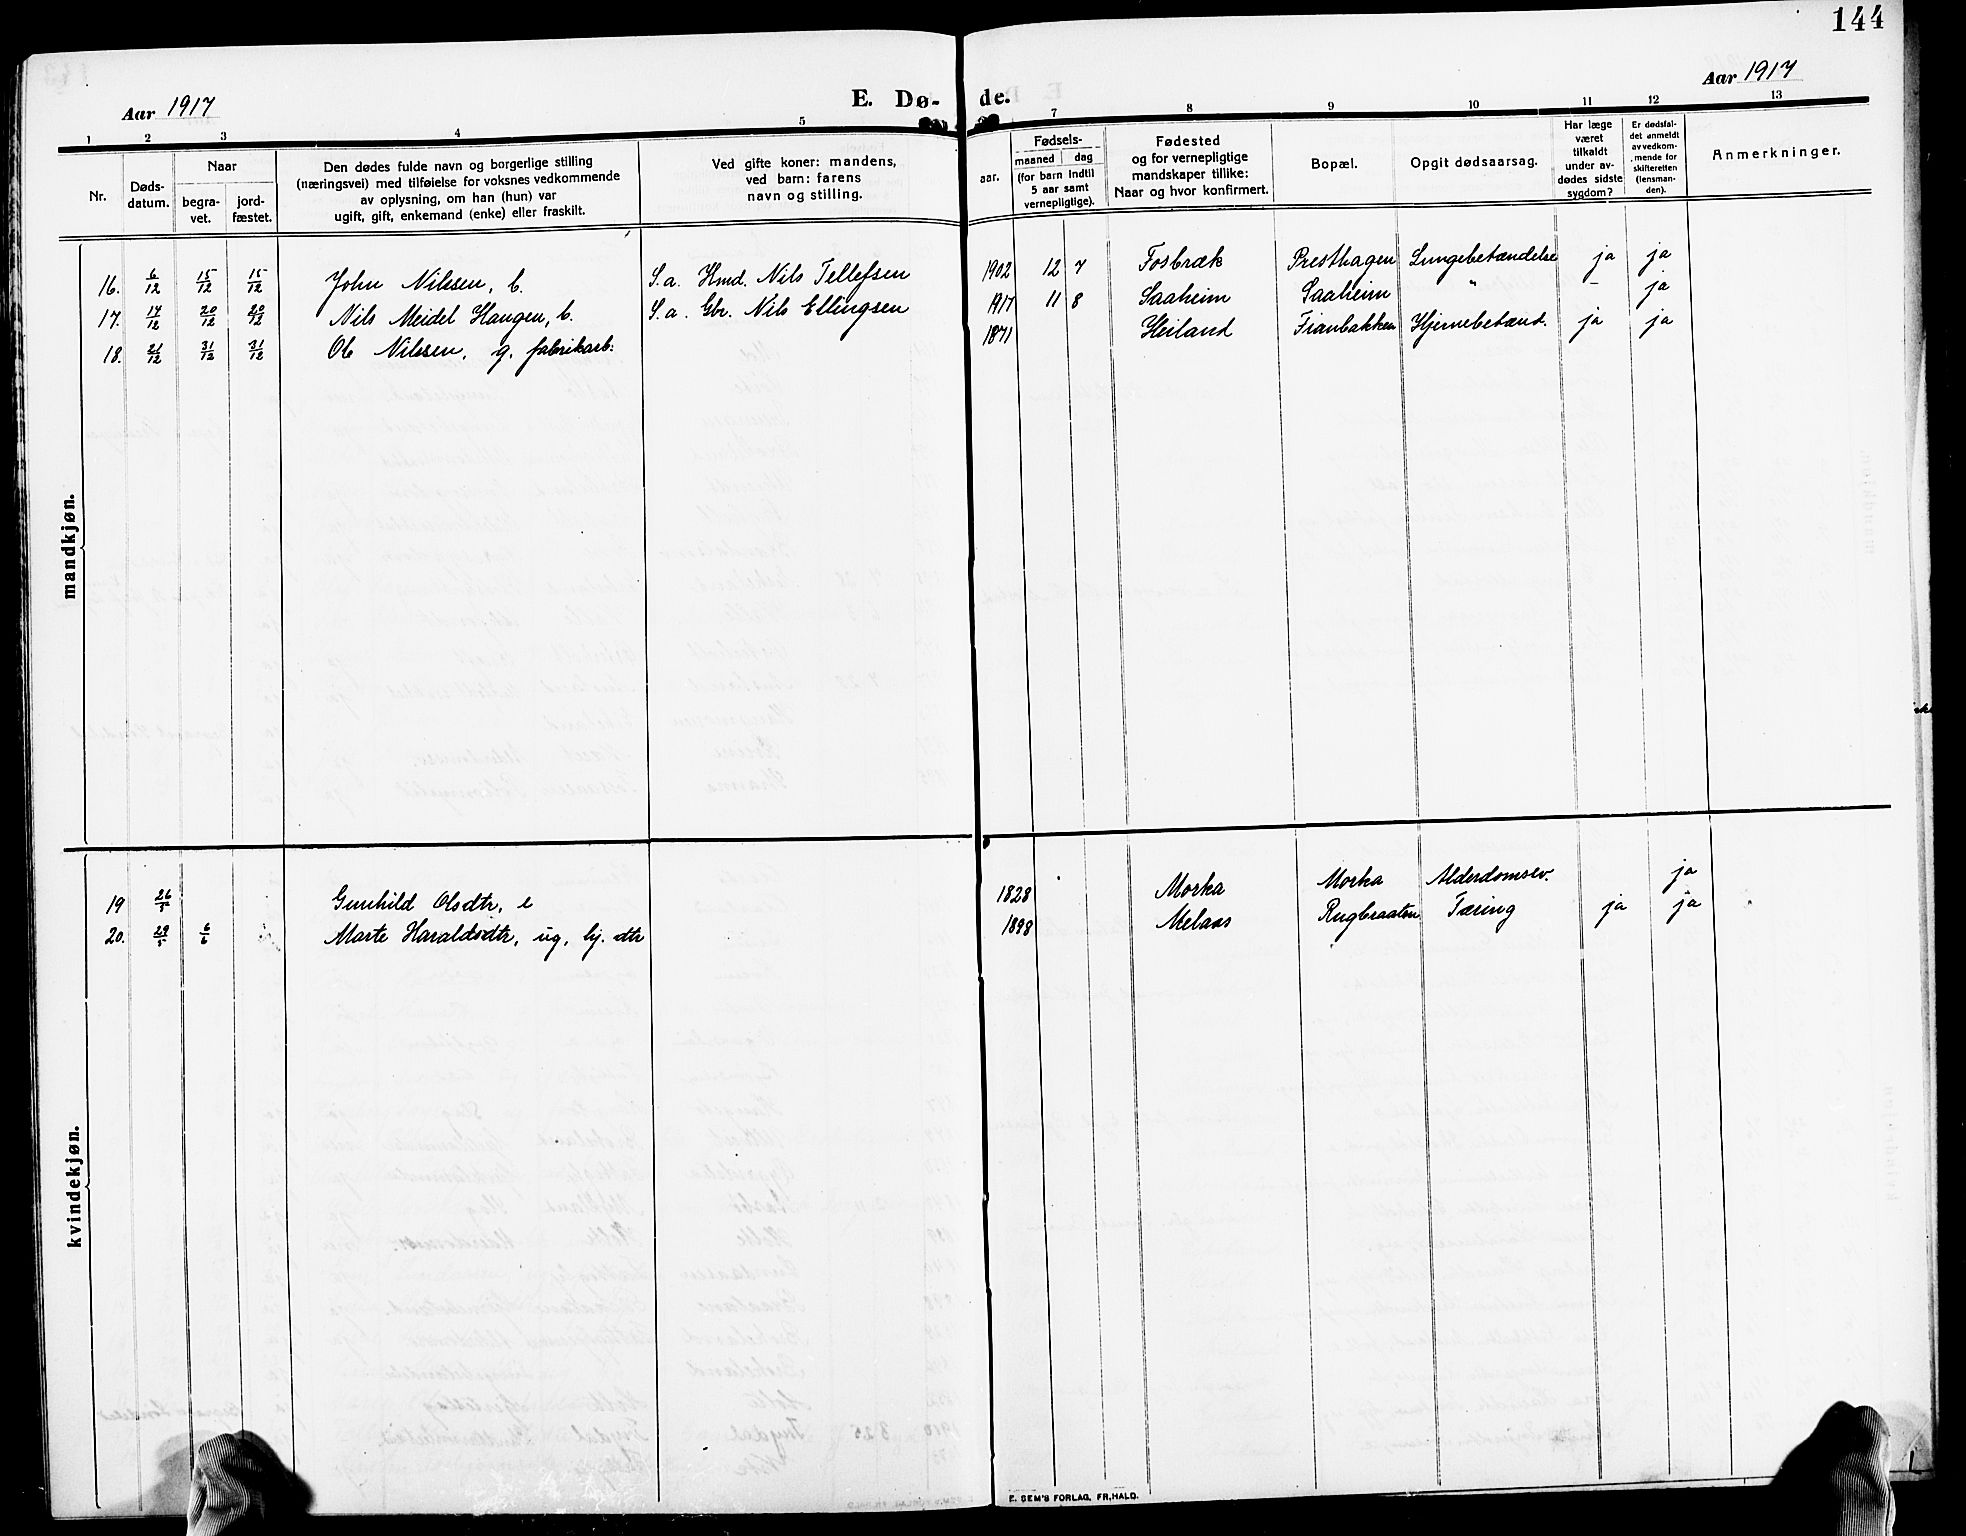 144
Aar 1917
E. Dø- de.
Aar 1917
1 2 3 4 5 7 8 9 10 11 12 13
Nr.
Døds-
datum.
Naar
begra-
vet.
jord-
fæstet.
Den dødes fulde navn og borgerlige stilling
(næringsvei) med tilføielse for voksnes vedkommende
av oplysning, om han (hun) var
ugift, gift, enkemand (enke) eller fraskilt.
Ved gifte koner: mandens,
ved barn: farens
navn og stilling.
Fødsels-
aar.
maaned dag
(for barn indtil
5 aar samt
vernepligtige).
Fødested
og for vernepligtige
mandskaper tillike:
Naar og hvor konfirmert.
Bopæl.
Opgit dødsaarsag.
Har læge
været
tilkaldt
under av-
dødes sidste
sygdom?
Er dødsfal-
det anmeldt
av vedkom-
mende for
skifteretten
(lensman-
den).
Anmerkninger.
mandkjøn.
16. 6/12 15/12 15/12 John Nilssen, b. S. a. Hmd. Nils Tellefsen 1902 12 7 Fosbræk Presthagen Lungebetændelse ja ja
17. 17/12 20/12 20/12 Nils Meidel Haugen, b. S. a. Gbr. Nils Ellingsen 1917 11 8 Saaheim Saaheim " - ja
18. 21/12 31/12 31/12 Ole Nilssen, g. fabrikarb: 1871 Heiland Fianbakken Hjernebetænd. ja ja
kvindekjøn.
19 26/5 Gunhild Olsdtr, e 1828 Morka Morka Alderdomssv. ja
20. 29/5 6/6 Marte Haraldsdtr, ug, hj. dtr 1898 Melaas Rugbraaten Tæring ja ja
E. SEM'S FORLAG, FR.HALD.